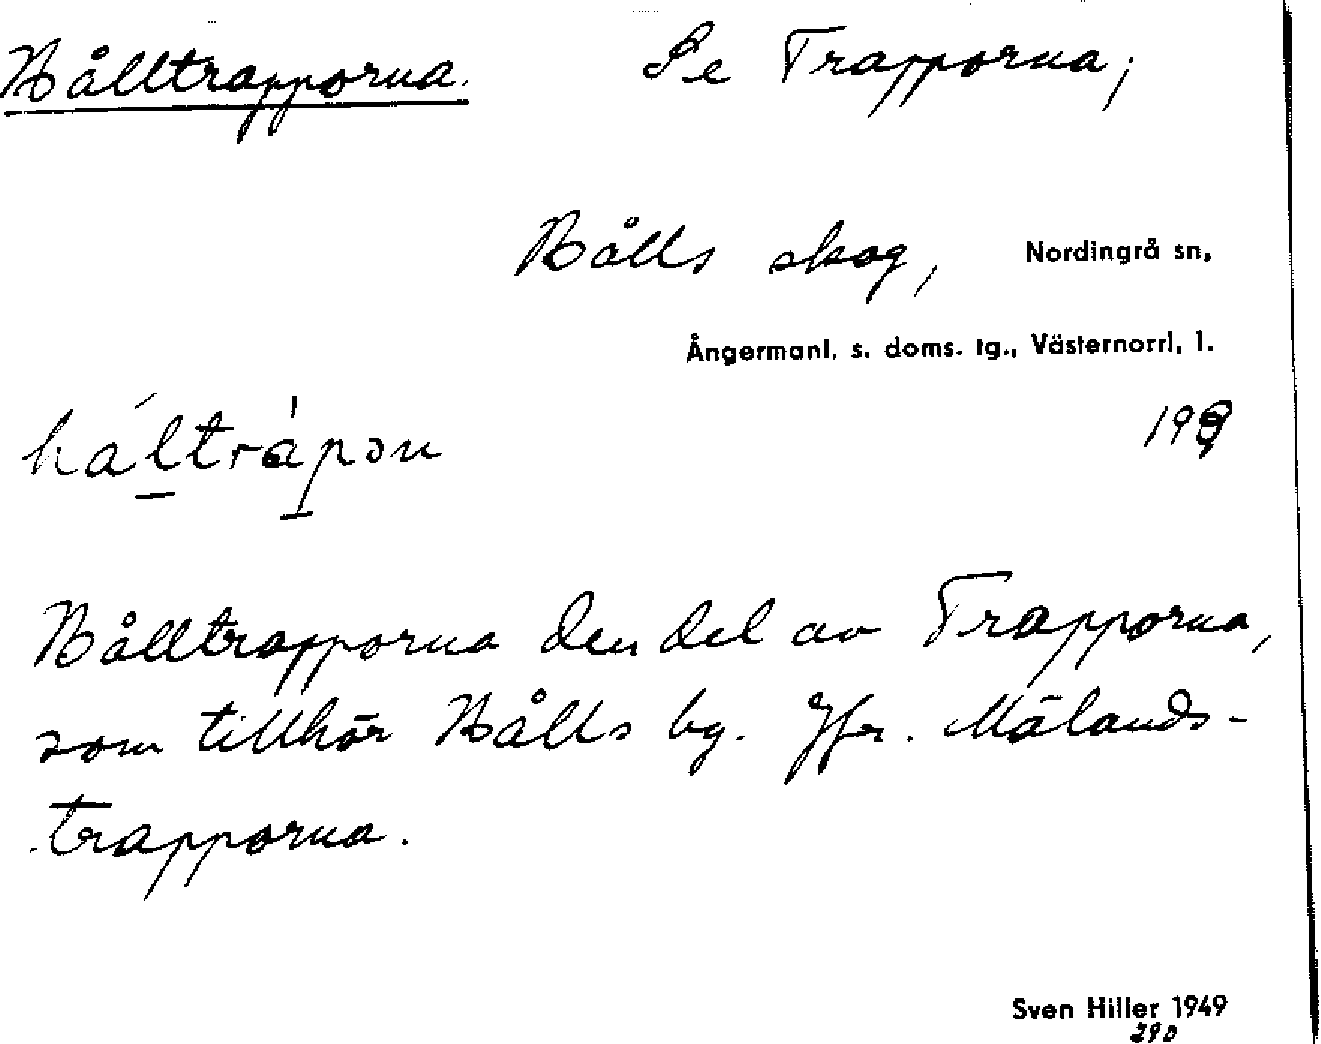 Hålltrapporna. Se Trapporna;
Hålls skog, Nordingrå sn,
Ångermanl. s. doms. tg., Västernorrl. l.
199
håltràpɔn
Hålltrapporna den del av Trapporna,
som tillhör Hålls by. Jfr. Mälands-
trapporna.
Sven Hiller 1949
290